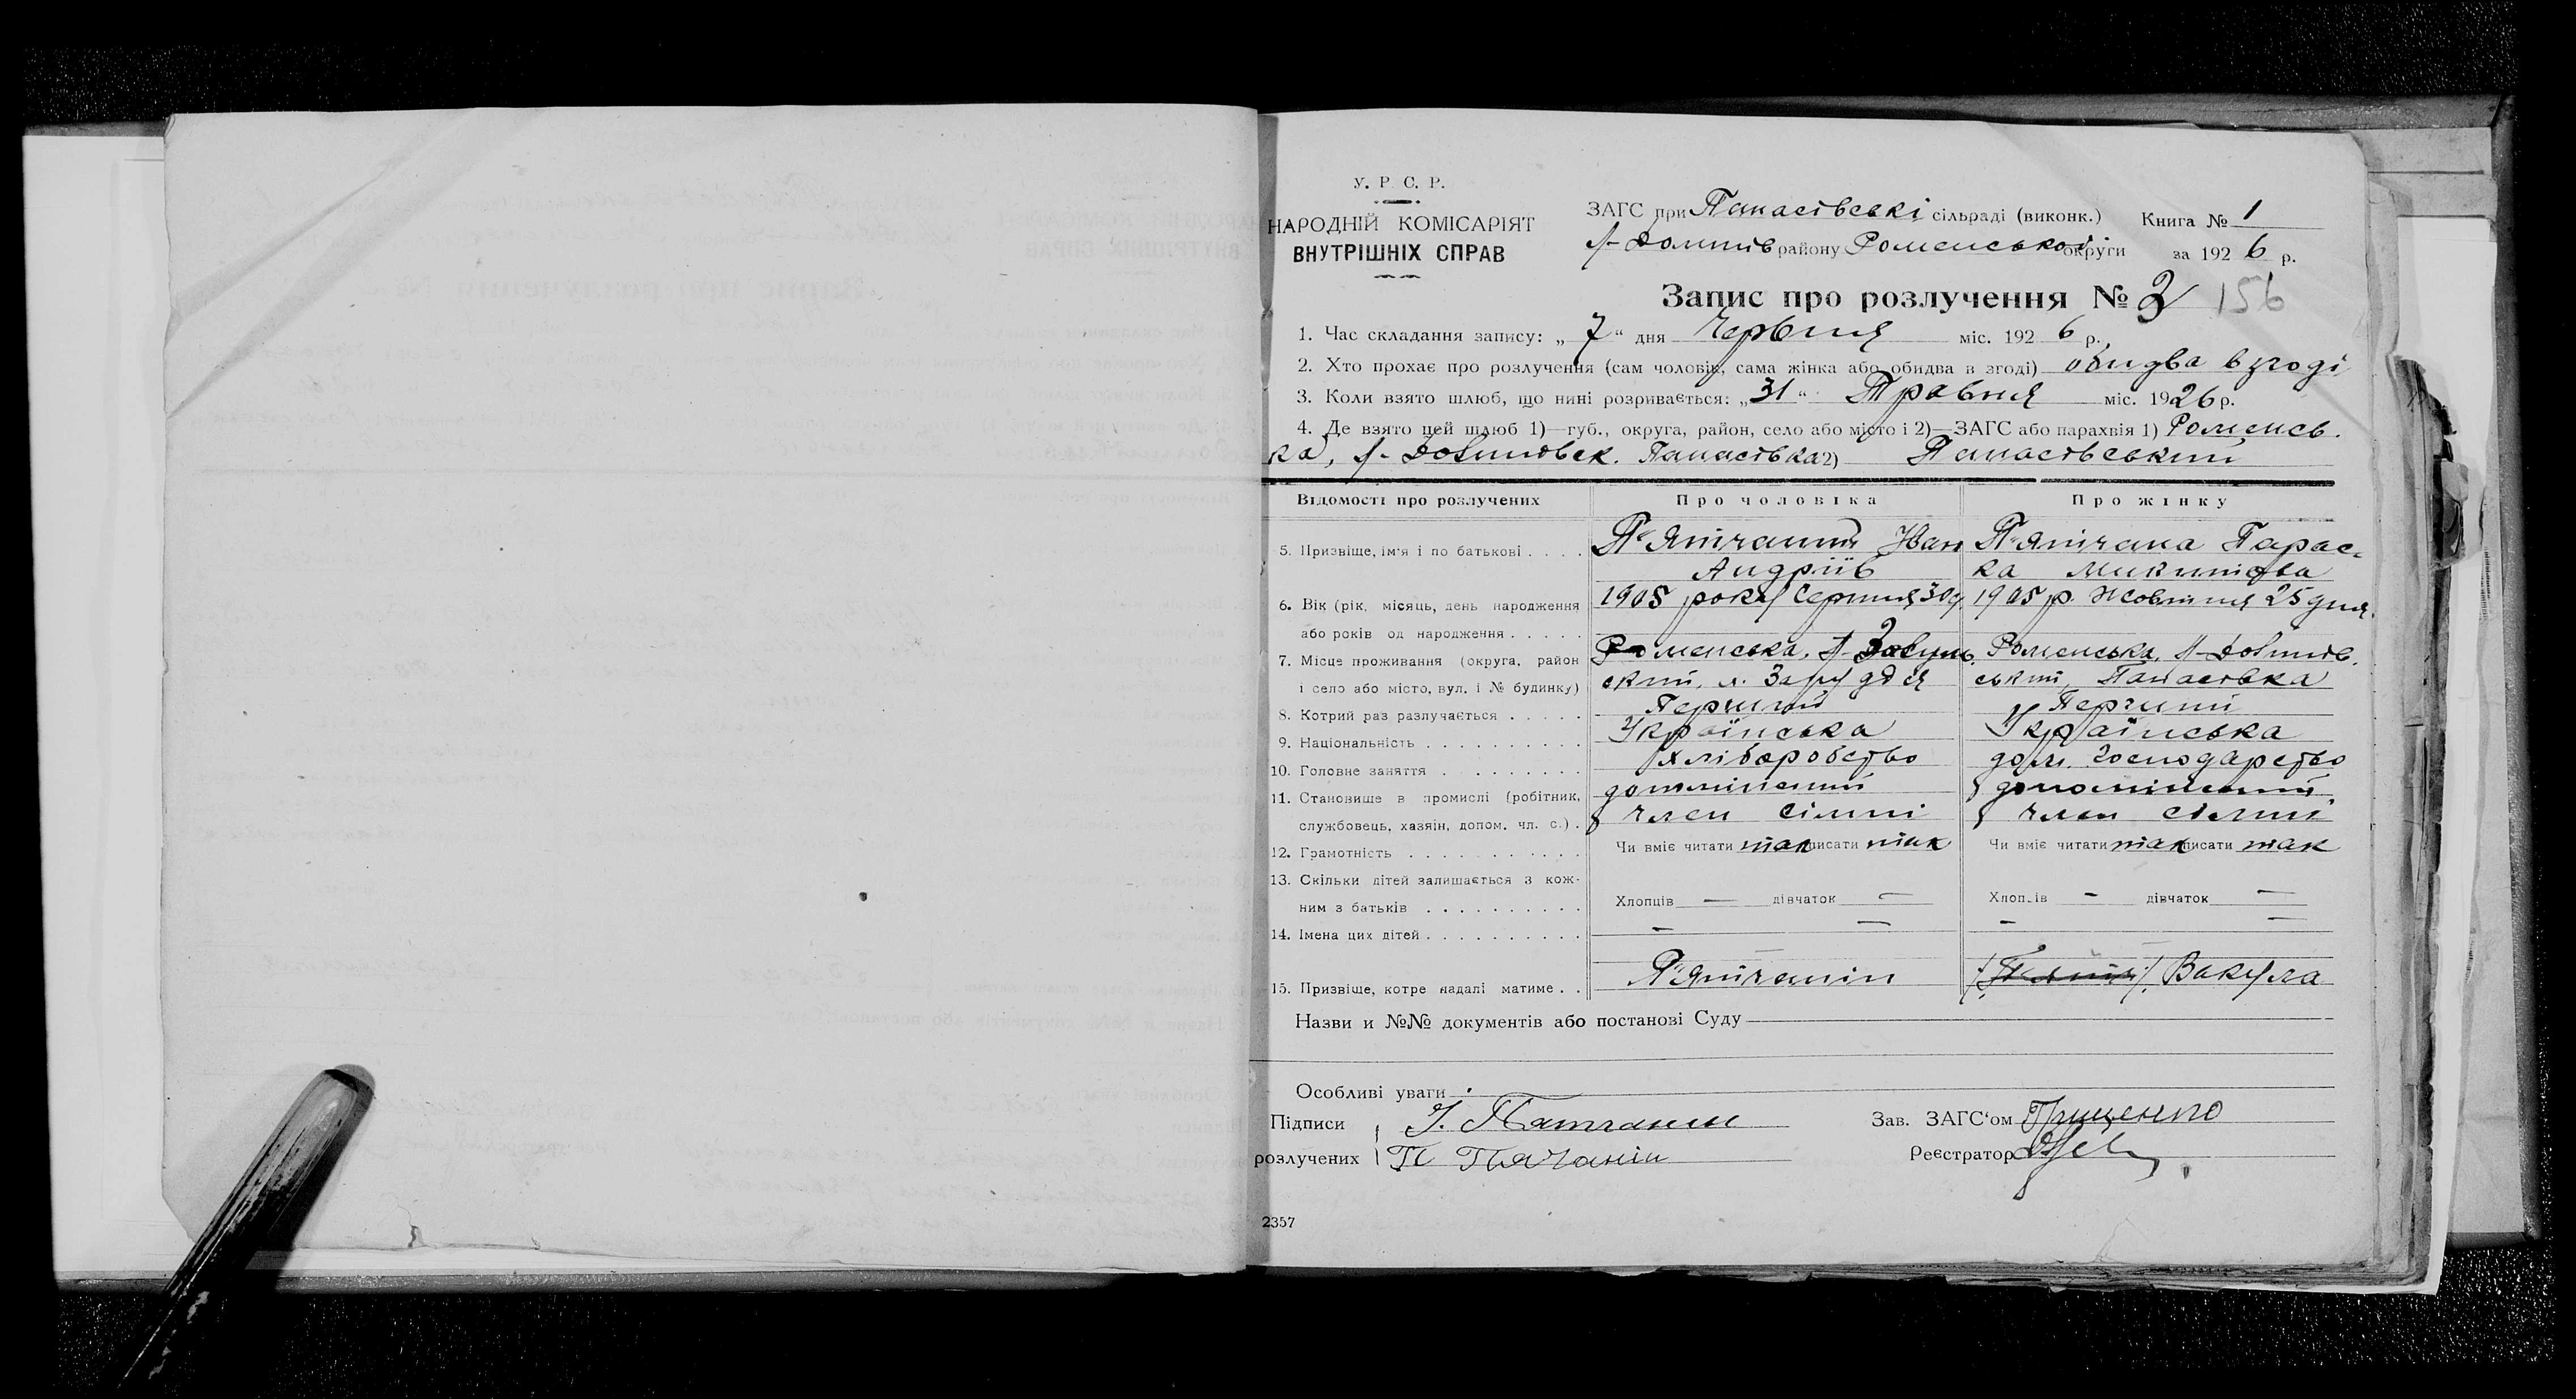 У. Р. С. Р.
НАРОДНІЙ КОМІСАРІЯТ
ВНУТРІШНІХ СПРАВ
ЗАГС при Панасівські сільраді (виконк.) Книга № 1
району Роменської округи за 192 6 р.
Запис про розлучення № 3 156
1. Час складання запису: „ 7 “ дня Червня міс. 192 6 р.
2. Хто прохає про розлучення (сам чоловік, сама жінка або обидва в згоді) обидва в згоді
3. Коли взято шлюб, що нині розривається: „ 31 “ Травня міс. 1926 р.
4. Де взято цей шлюб 1)—губ., округа, район, село або місто і 2)—ЗАГС або парахвія 1) Роменсь.
ка, Панасівка 2) Панасівський
Відомості про розлучених Про чоловіка Про жінку
5. Призвіще, ім'я і по батькові . . . . Іван Парас-
Андріїв ка Микитова
6. Вік (рік, місяць, день народження 1905 року Серпня 30 д. 1905 р. Жовтня 25 дня.
або років од народження . . . . .
7. Місце проживання (округа, район Роменська, Роменська,
і село або місто, вул. і № будинку) Панасівка
8. Котрий раз разлучається . . . . . Перший Перший
9. Національність . . . . . . . . . . Українська Українська
10. Головне заняття . . . . . . . . . хліборобство дом. господарство
11. Становище в промислі (робітник,
службовець, хазяін, допом. чл. с.) . член сімʼї член сімʼї
12. Грамотність . . . . . . . . . . . Чи вміє читати так писати так Чи вміє читати так писати так
13. Скільки дітей залишається з кож-
ним з батьків . . . . . . . . . . Хлопців — дівчаток — Хлопців — дівчаток —
14. Імена цих дітей . . . . . . . . . . — — — —
15. Призвіще, котре надалі матиме . . П'ятчанін Вакула
Назви и №№ документів або постанові Суду
Особливі уваги
Підписи І. Пятчанин Зав. ЗАГС‘ом Грищенко
розлучених П Пячанін Реєстратор
2357